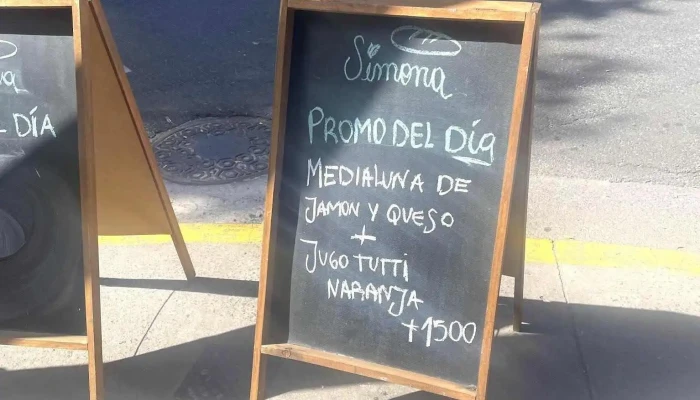 Simona
PROMO DEL Día
MEDIALUNA DE
JAMON Y QUESO
+
JUGO TUTTI
NARANJA
+1500
L DÍA